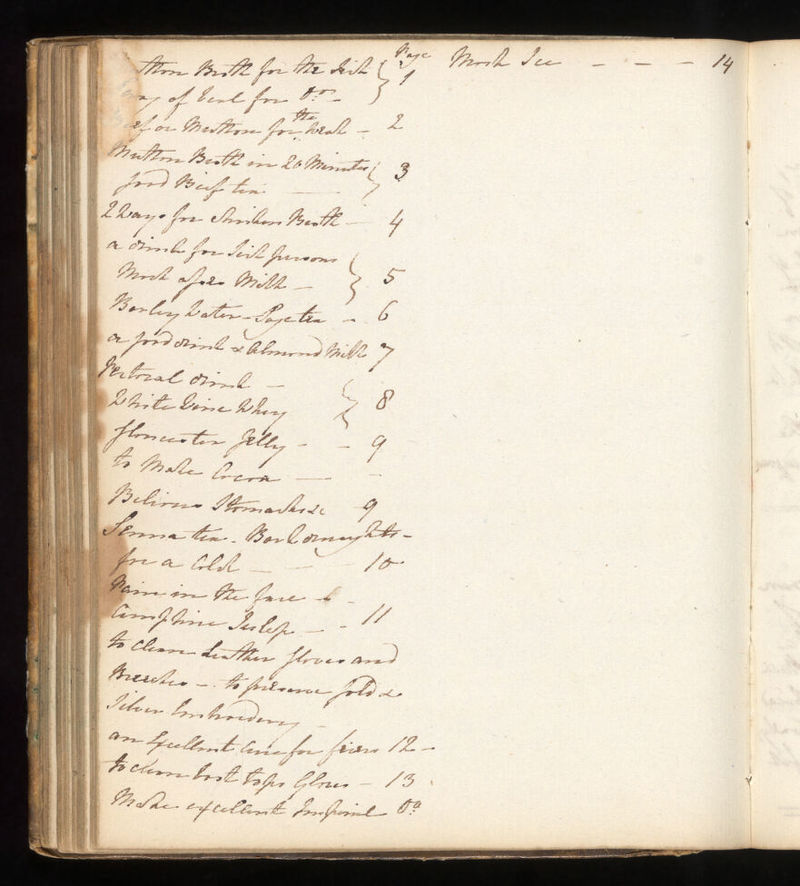 Page
thon Broth for the Sick } 1
ay of Veal for Do -
ef or Mutton for the weak - 2
Mutton Broth in 20 Minutes } 3
good Beef tea
2 Ways for Chicken Broth - 4
a drink for Sick persons } 5
Mock asses Milk -
Barley Water - Sage tea - 6
a good drink & Almond Milk 7
Pectoral drink - } 8
White Wine Whey
Gloucester Jelly - - 9
to Make Cocoa - -
Bilious Stomachs &c 9
Senna tea - Bark draughts -
for a Cold - - - 10
Pain in the face - -
Camphire Julep - - 11
to Clean Leather Gloves and
Breeches - to preserve Gold &
Silver Embroidery -
an Excellent Cure for 12 -
to clean boot tops Gloves - 13
Make excellent Imperial Do
Mock Ice - - - 14